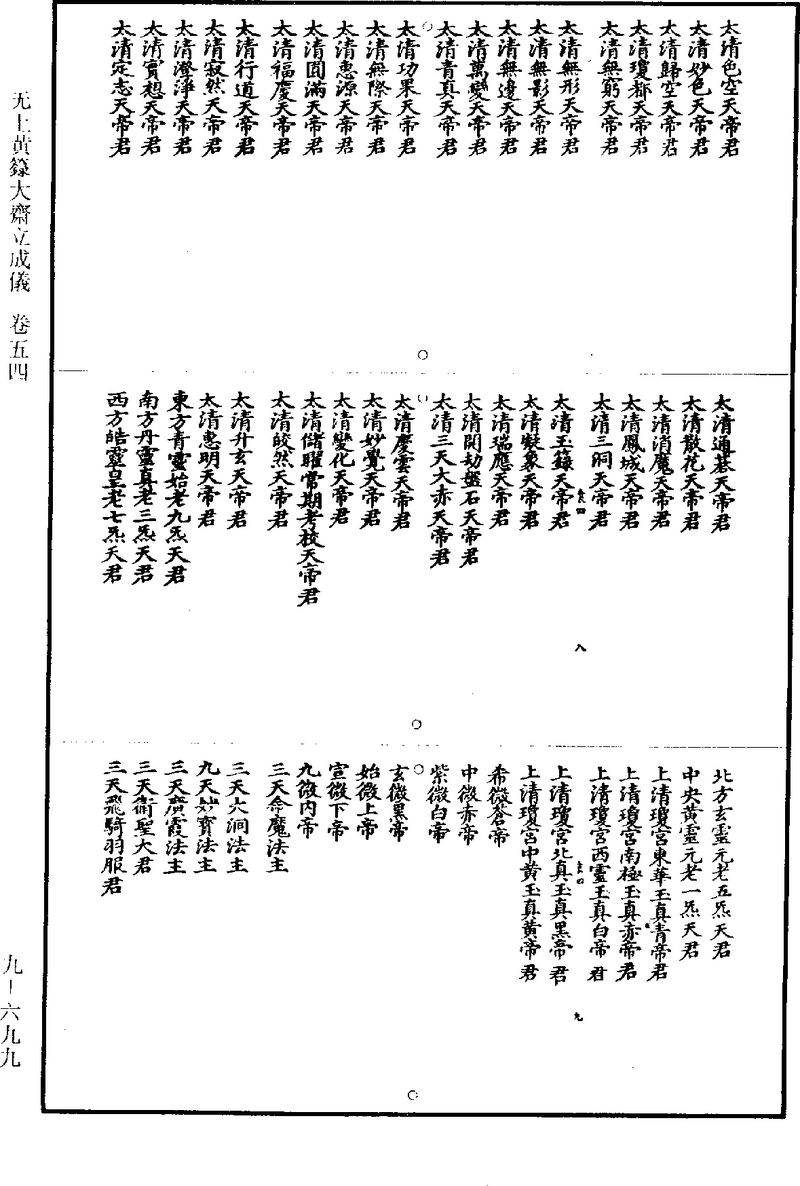 太清色空天帝君
太清妙色天帝君
太清歸空天帝君
太清瓊都天帝君
太清無窮天帝君
太清無形天帝君
太清無影天帝君
太清無邊天帝君
太清萬變天帝君
太清青真天帝君
太清功果天帝君
太清無際天帝君
太清惠源天帝君
太清圓滿天帝君
太清福慶天帝君
太清行道天帝君
太清寂然天帝君
太清澄淨天帝君
太清實想天帝君
太清定志天帝君
太清通碁天帝君
太清散花天帝君
太清消魔天帝君
太清鳳城天帝君
太清三洞天帝君
太清玉籙天帝君
太清凝象天帝君
太清瑞應天帝君
太清開劫盤石天帝君
太清三天大赤天帝君
太清慶雲天帝君
太清妙覺天帝君
太清變化天帝君
太清儲曜常期考校天帝君
太清皎然天帝君
太清升玄天帝君
太清惠明天帝君
東方青靈始老九炁天君
南方丹靈真老三炁天君
西方皓靈皇老七炁天君
八
北方玄靈元老五炁天君
中央黃靈元老一炁天君
上清瓊宮東華玉真青帝君
上清瓊宮南極玉真赤帝君
上清瓊宮西靈玉真白帝君
上清瓊宮北真玉真黑帝君
上清瓊宮中黃玉真黃帝君
希微蒼帝
中微赤帝
紫微白帝
玄微黑帝
始微上帝
宣微下帝
九微內帝
三天命魔法主
三天大洞法主
九天妙寶法主
三天廣霞法主
三天衛聖大君
三天飛騎羽服君
九
无上黃籙大齋立成儀 卷五四
九－六九九